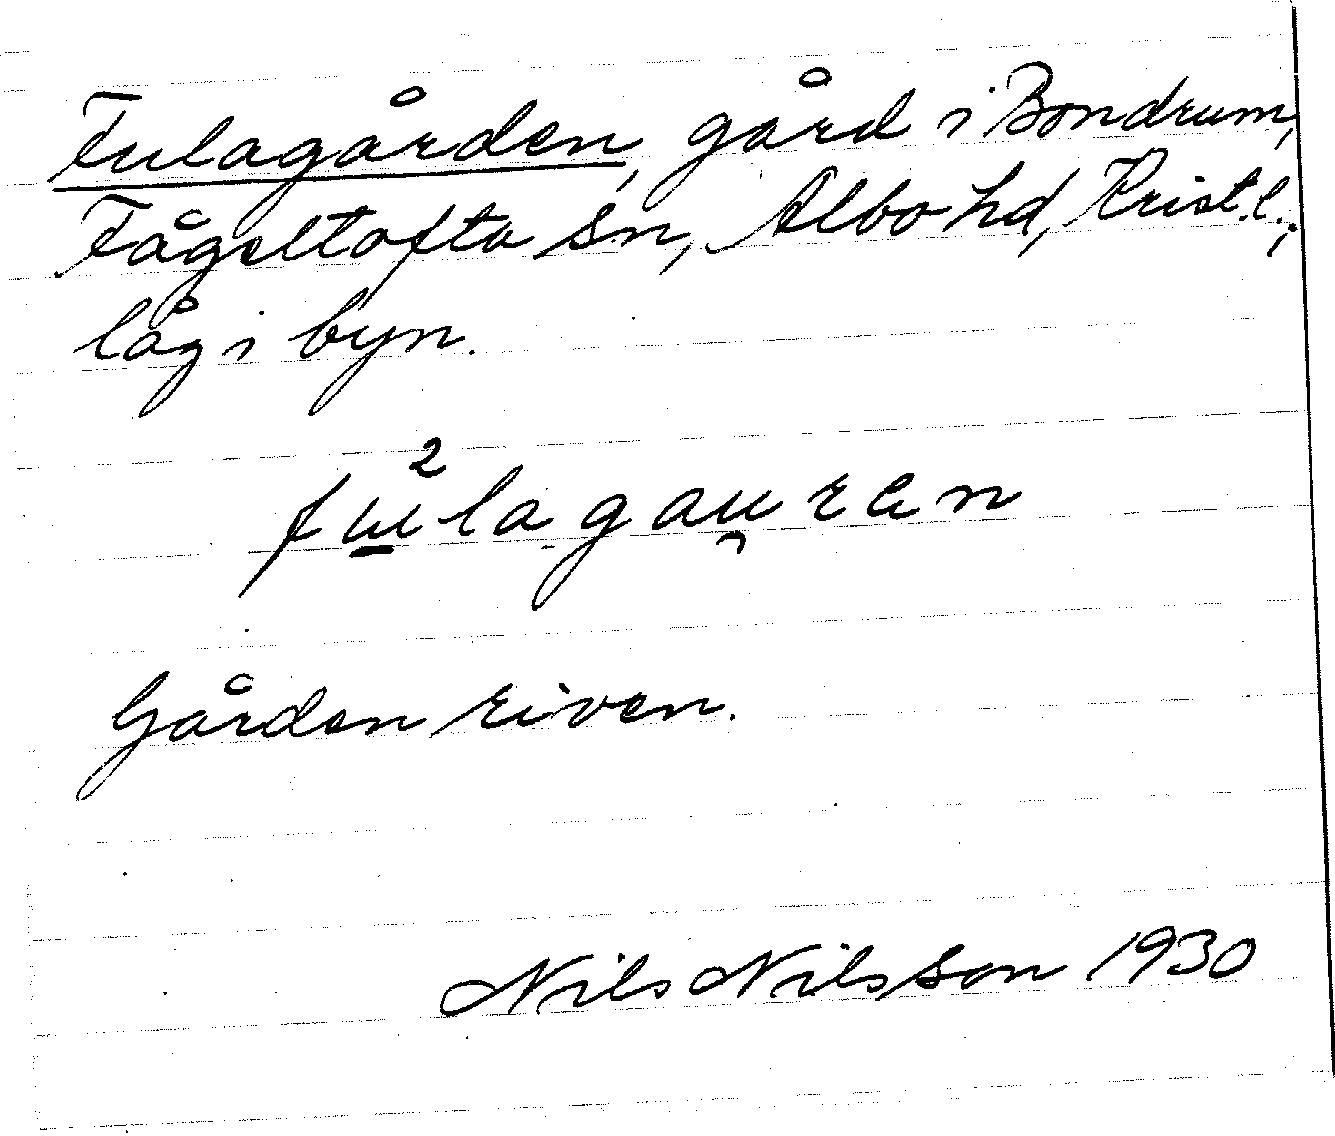 Fulagården, gård i Bondrum,
Fågeltofta sn, Albo hd, Krist. l.;
låg i byn.
fɯ̱²lagau̯ren
Gården riven.
Nils Nilsson 1930